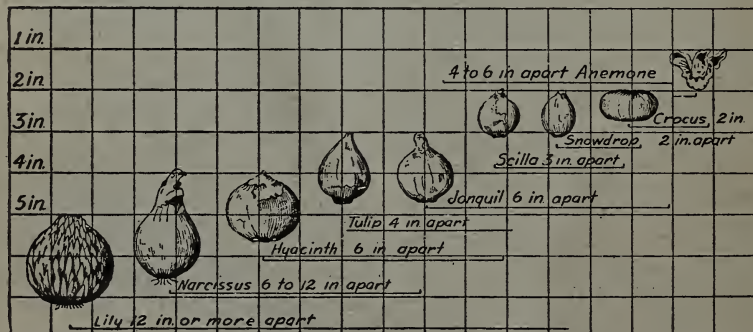 1 in.
4 to 6 in apart Anemone
2 in.
Crocus, 2 in.
3 in.
Snowdrop, 2 in. apart
Scilla 3 in. apart
4 in.
Jonquil 6 in. apart
5 in.
Tulip 4 in apart
Hyacinth 6 in apart
Narcissus 6 to 12 in apart
Lily 12 in. or more apart